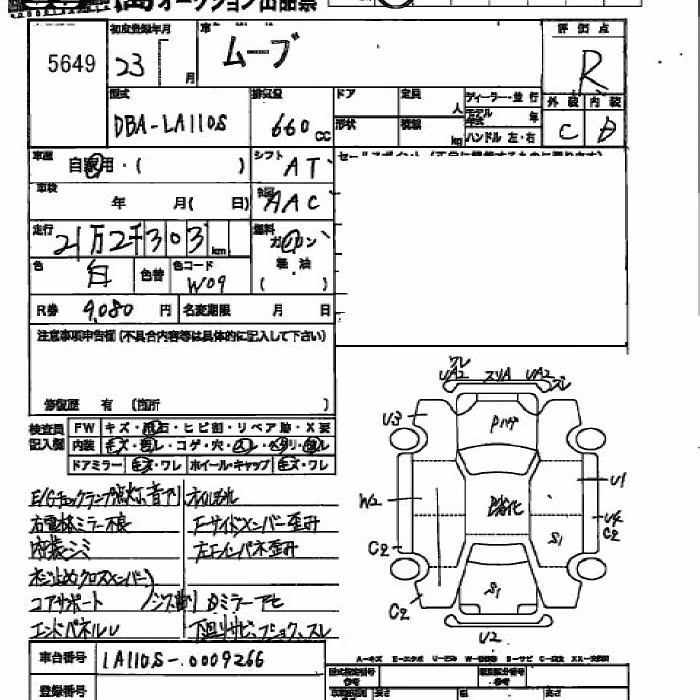 オークション出品票
5649
初度登録年月
23
月
車名
ムーブ
評価点
R
型式
DBA-LA110S
排気量
660cc
ドア
定員
人
形状
積載
kg
ディーラー・並行
モデル年式 年
ハンドル 左・右
外装 内装
C D
車歴
自家用・( )
シフト
AT
車検
年 月( 日)
AAC
走行
21万2千303km
燃料
ガソリン
軽油
( )
色
白
色替
色コード
W09
R券 9,080 円
名変期限 月 日
注意事項申告欄(不具合内容等は具体的に記入して下さい)
修復歴 有 (箇所
検査員記入欄
FW キズ・飛石・ヒビ割・リペア跡・X要
内装
コゲ・穴
ドアミラー キズ・ワレ ホイール・キャップ キズ・ワレ
E/Gチェックランプ点灯、音アリ
オイルモレ
右電格ミラー不良
Fサイドメンバー歪み
内装シミ
左Fインパネ歪み
ネジ止めクロスメンバー
コアサポート
エンドパネルU
下廻りサビ
車台番号
LA110S-0009266
登録番号
ワレ
UA2 スリA UA2
U3
Pハゲ
U1
W2
U4
C2
C2
S1
S1
C2
U2
A-キズ